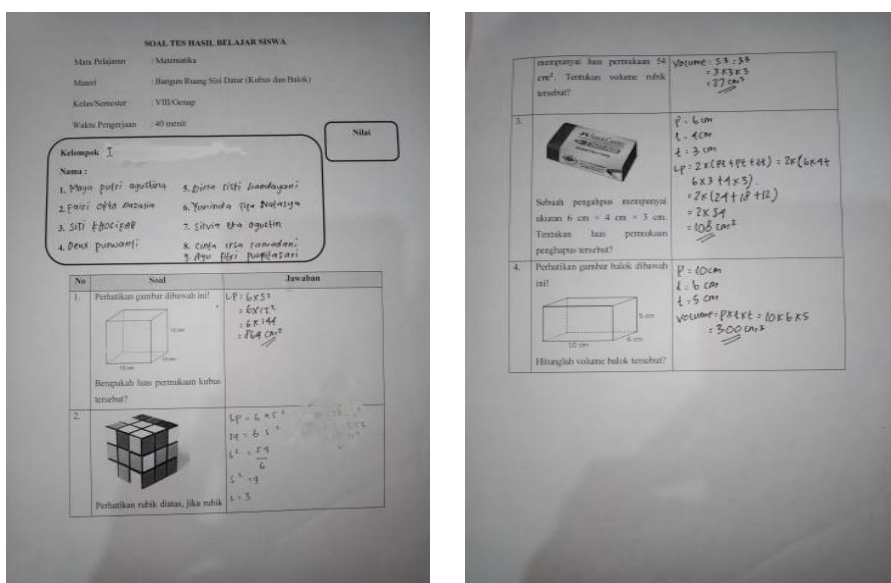 SOAL TES HASIL BELAJAR SISWA
Mata Pelajaran : Matematika
Materi : Bangun Ruang Sisi Datar (Kubus dan Balok)
Kelas/Semester : VIII/Genap
Waktu Pengerjaan : 40 menit
Kelompok I
Nilai
Nama :
1. Maya putri agustina
2. Fajri Okta
3. Siti
4. Dewi purwanti
5. Dina sisti handayani
6. Yuninda
7. Silvia Eka agustin
8. Cinta irsa ramadani
9. Ayu Fitri puspitasari
No Soal Jawaban
1. Perhatikan gambar dibawah ini!
Berapakah luas permukaan kubus
tersebut?
LP = 6 x s²
= 6x12²
= 6 x 144
= 864 cm²
2. Perhatikan rubik diatas, jika rubik
LP = 6 x s²
54 = 6 s²
s² = 54
6
s² = 9
s = 3
mempunyai luas permukaan 54
cm². Tentukan volume rubik
tersebut?
Volume : s3 = 3³
= 3 x 3 x 3
= 27 cm³
3.
Sebuah penghapus mempunyai
ukuran 6 cm × 4 cm × 3 cm.
Tentukan luas permukaan
penghapus tersebut?
P = 6 cm
l = 4 cm
t = 3 cm
LP = 2 x (Pl + Pt + lt) = 2x (6x4+
6 x 3 + 4 x 3)
= 2x (24 + 18 + 12)
= 2 x 54
= 108 cm²
4. Perhatikan gambar balok dibawah
ini!
5 cm
6 cm
10 cm
Hitunglah volume balok tersebut?
P = 10 cm
l = 6 cm
t = 5 cm
Volume = P x l x t = 10 x 6 x 5
= 300 cm³